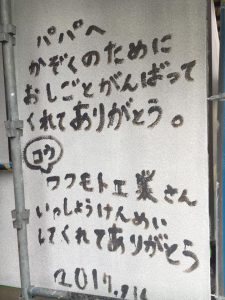 パパへ
かぞくのために
おしごとがんばって
くれてありがとう。
コウ
フクモト工業さん
いっしょうけんめい
してくれてありがとう
2017.